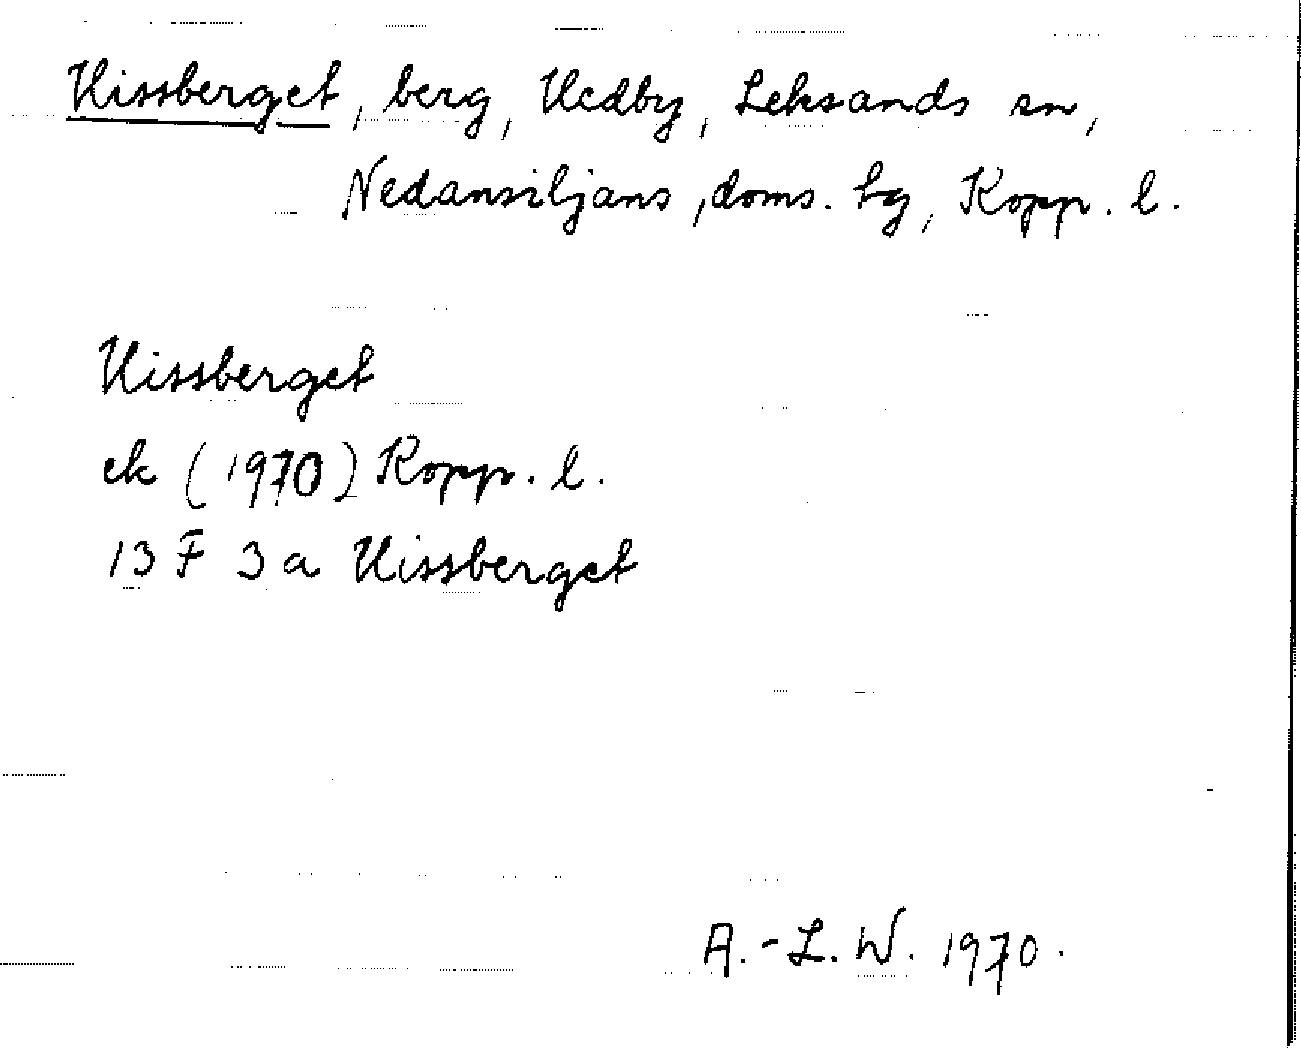 Hissberget, berg, Hedby, Leksands sn,
Nedansiljans, doms. tg, Kopp. l.
Hissberget
ek (1970) Kopp. l.
13 F 3 a Hissberget
A.-L. W. 1970.